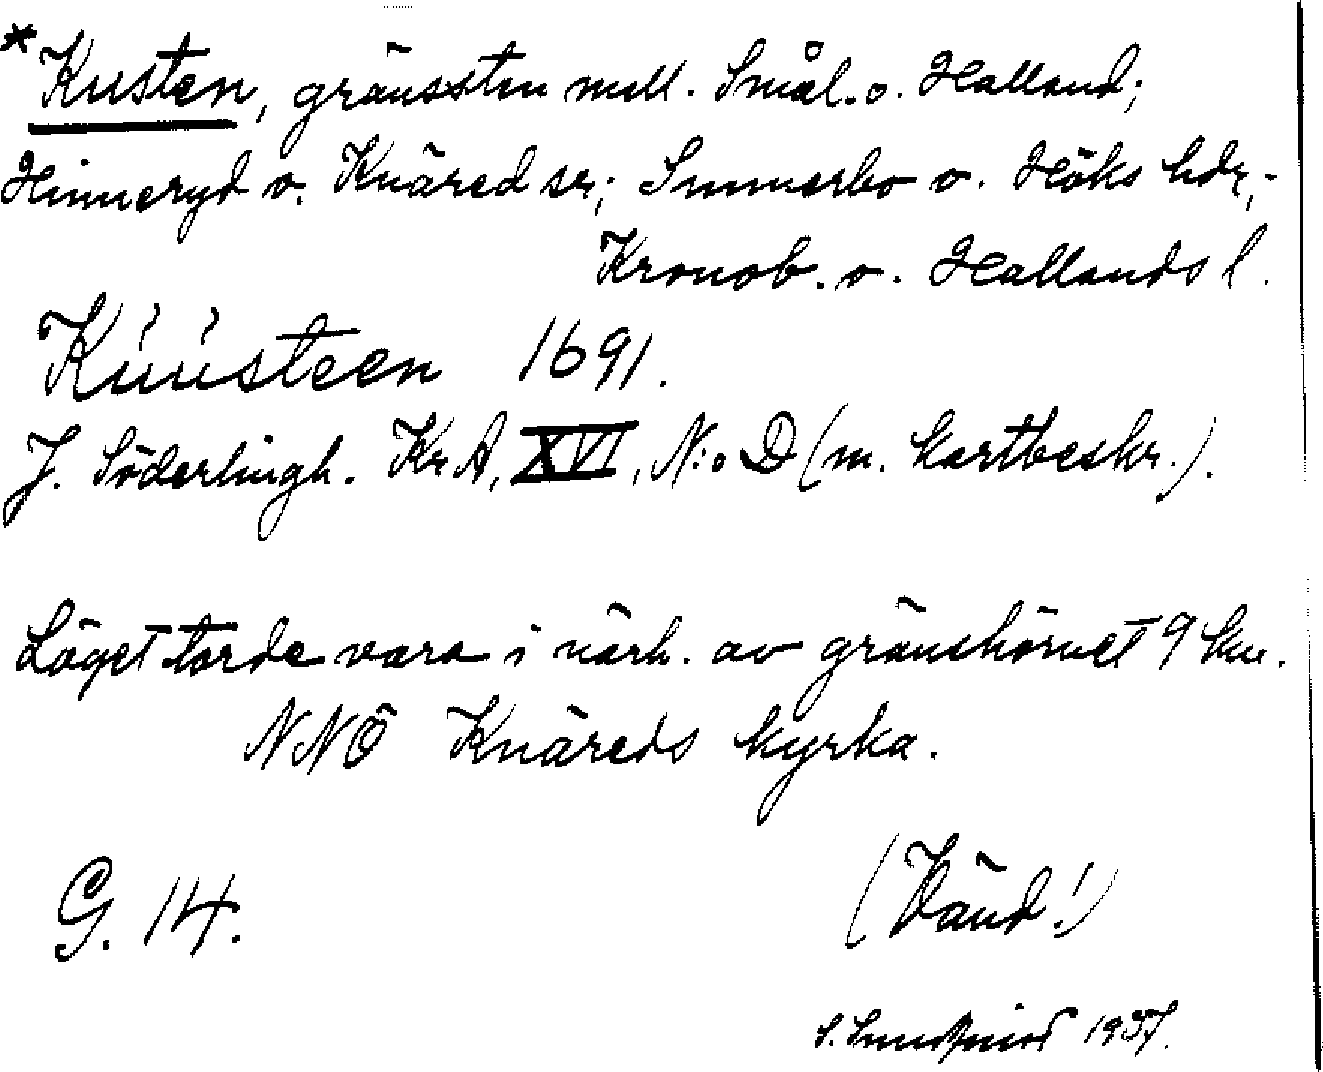 *Kusten, gränssten mell. Smål. o. Halland;
Hinneryd o. Knäred sr; Sunnerbo o. Höks hdr,-
Kronob. o. Hallands l.
Kúústeen 1691.
J. Söderlingh. Kr.A, XVI, N:o D (m. kartbeskr.).
Läget torde vara i närh. av gränshörnet 9 km.
NNÖ Knäreds kyrka.
G. 14.
(Vänd!)
1937.